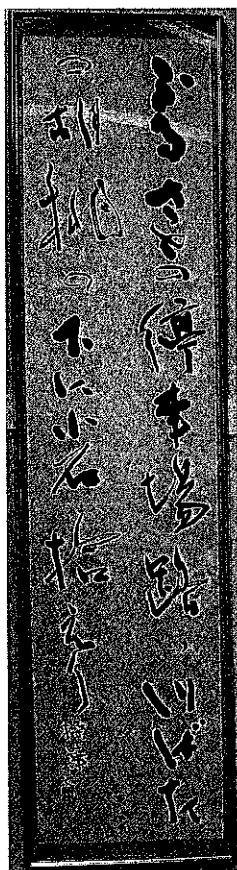 ふるさとの停車場路の川ばた
の胡桃の下に小石拾へり